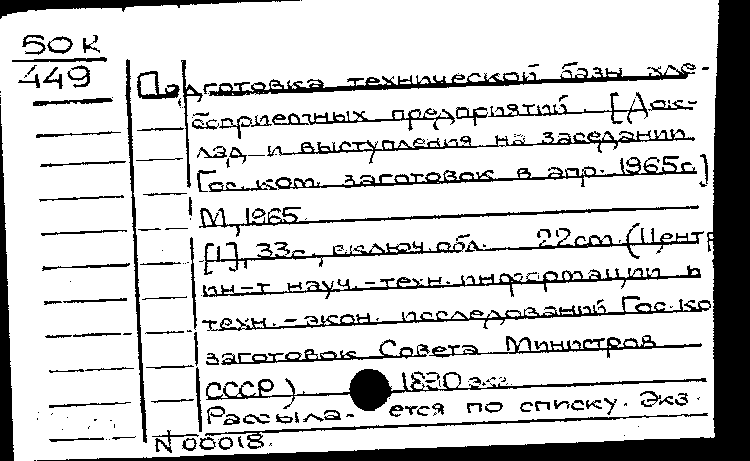 50 К
449
Подготовка технической базы хле-
боприемных предприятий. [Док-
лад и выступления на заседании
Гос. ком. заготовок в апр. 1965г.]
М, 1965.
[1], 33с., включ. обл. 22см. (Центр
ин-т науч.-техн. информации и
техн.-экон. исследований Гос. ко
заготовок Совета Министров
СССР). 1820 экз.
Рассыла- ется по списку. Экз.
N 00018.